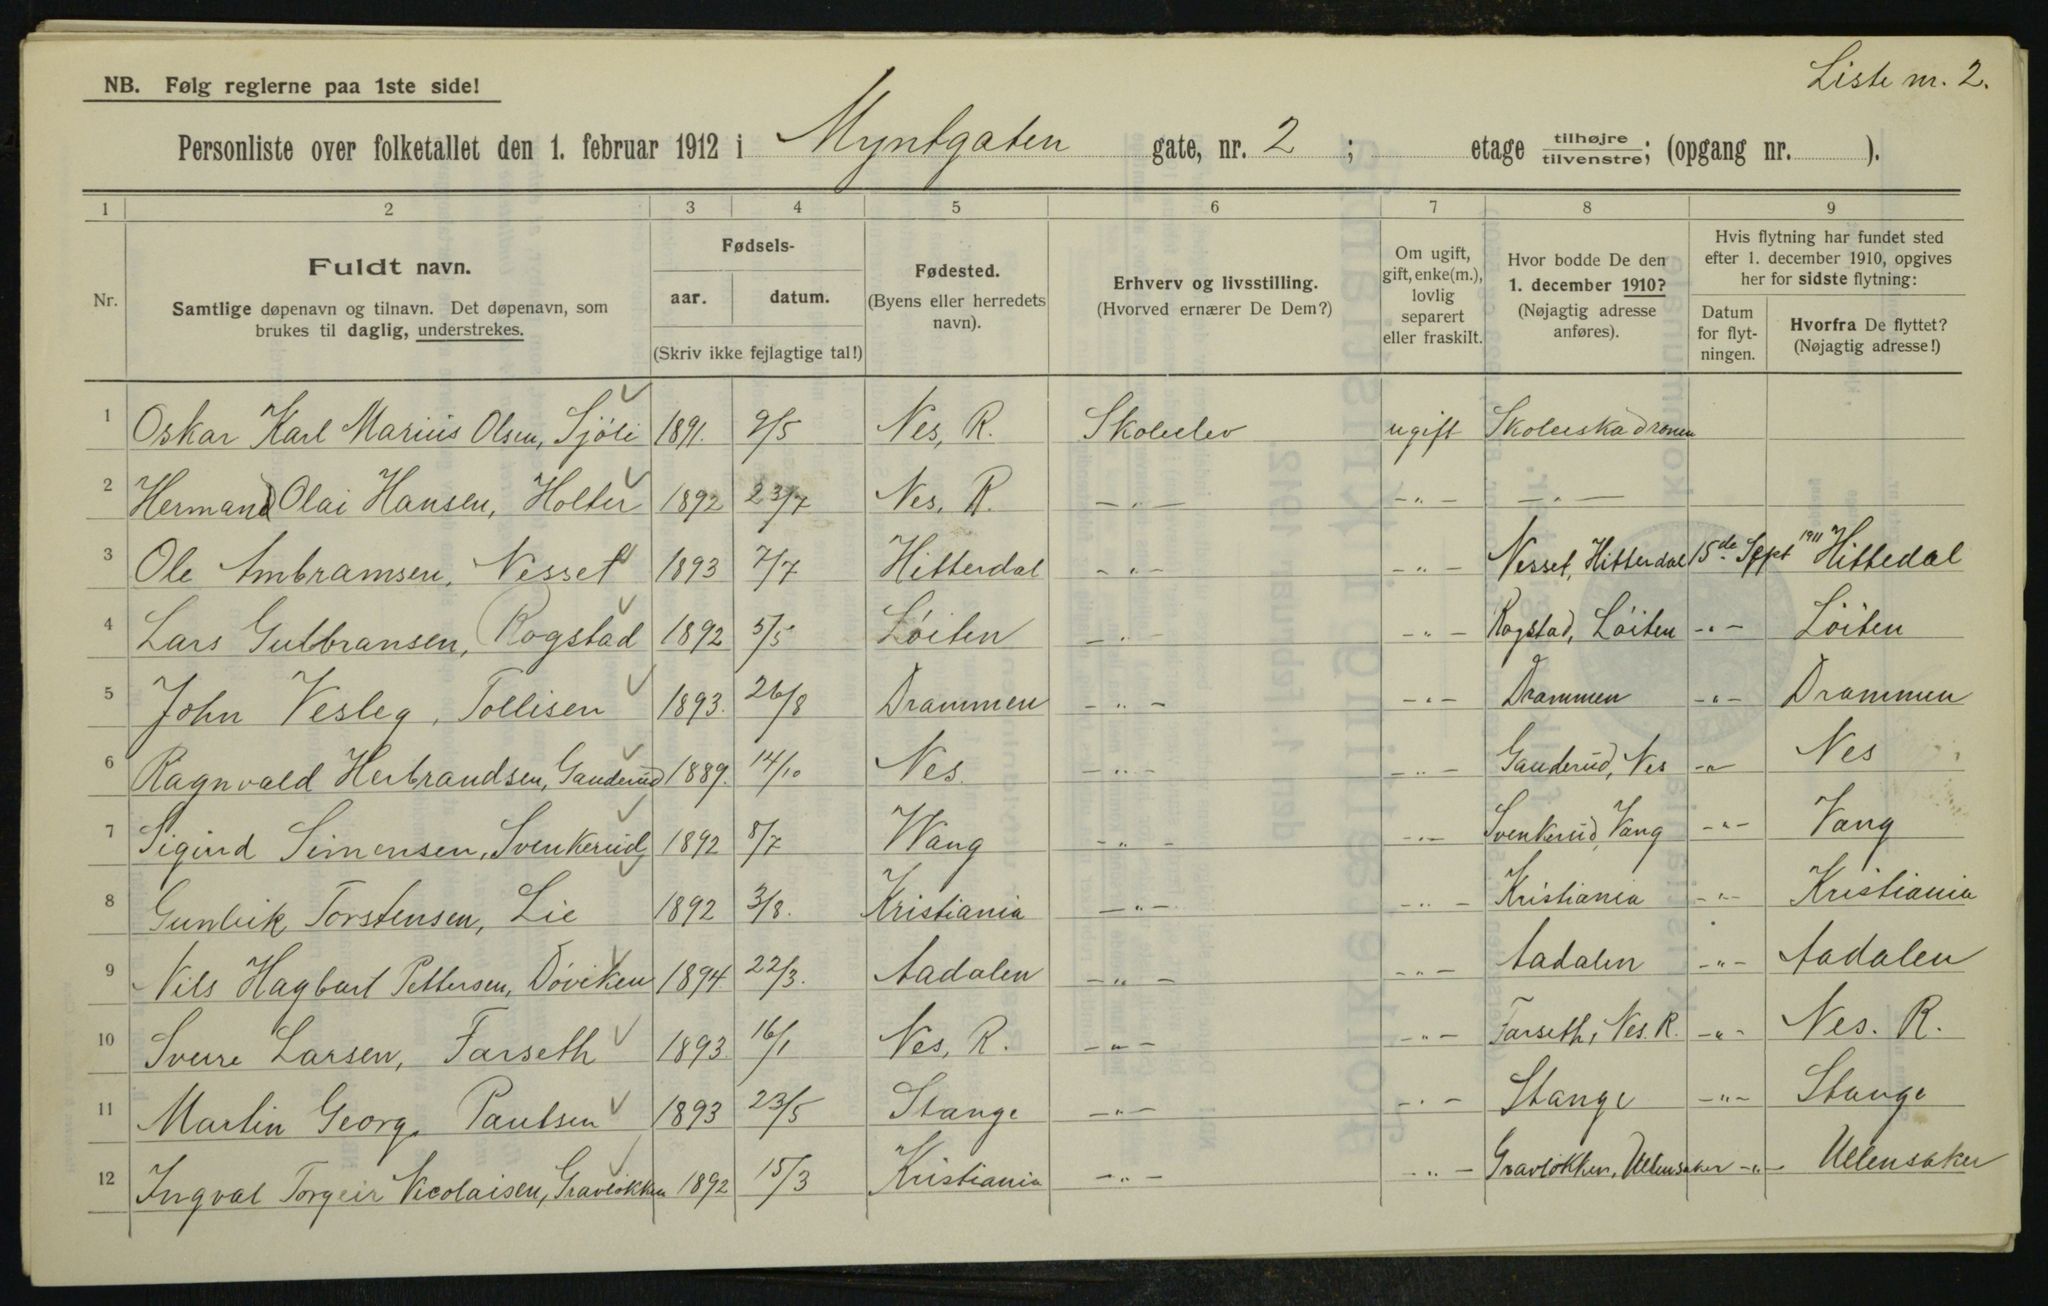 Liste nr. 2.
NB. Følg reglerne paa 1ste side!
Personliste over folketallet den 1. februar 1912 i Myntgaten gate, nr. 2; etage tilhøjre tilvenstre; (opgang nr. ).
1 2 3 4 5 6 7 8 9
Nr. Fuldt navn. Samtlige døpenavn og tilnavn. Det døpenavn, som brukes til daglig, understrekes.
Fødsels- aar. datum. (Skriv ikke fejlagtige tal!)
Fødested. (Byens eller herredets navn).
Erhverv og livsstilling. (Hvorved ernærer De Dem?)
Om ugift, gift, enke(m.), lovlig separert eller fraskilt.
Hvor bodde De den 1. december 1910? (Nøjagtig adresse anføres).
Hvis flytning har fundet sted efter 1. december 1910, opgives her for sidste flytning:
Datum for flyt-ningen. Hvorfra De flyttet? (Nøjagtig adresse!)
1 Oskar Karl Marius Olsen, Sjöli 1891. 9/5 Nes, R. Skoleelev ugift Skoleeskadronen
2 Hermand Olai Hansen, Holter 1892 23/7 Nes, R. — „ — — „ — — „ —
3 Ole Ambramsen, Nesset 1893 7/7 Hitterdal — „ — — „ — Nesset, Hitterdal 15de Sept 1911 Hittedal
4 Lars Gulbransen, Rogstad 1892 5/5 Löiten — „ — — „ — Rogstad, Löiten — „ — Löiten
5 John Vesleg, Tollisen 1893. 26/8 Drammen — „ — — „ — Drammen — „ — Drammen
6 Ragnvald Herbrandsen, Ganderud 1889. 14/10 Nes. — „ — — „ — Ganderud, Nes — „ — Nes
7 Sigurd Simensen, Svenkerud 1892 8/7 Wang — „ — — „ — Svenkerud, Vang — „ — Vang
8 Gunleik Torstensen, Lie 1892 3/8. Kristiania — „ — — „ — Kristiania — „ — Kristiania
9 Nils Hagbart Pettersen, Döviken 1894. 22/3. Aadalen — „ — — „ — Aadalen — „ — Aadalen
10 Sverre Larsen, Farseth 1893. 16/1 Nes, R. — „ — — „ — Farseth, Nes. R. — „ — Nes. R.
11 Martin Georg Paulsen 1893 23/5 Stange — „ — — „ — Stange — „ — Stange
12 Ingval Torgeir Nicolaisen, Gravlökken 1892 15/3 Kristiania — „ — — „ — Gravlökken, Ullensaker — „ — Ullensaker